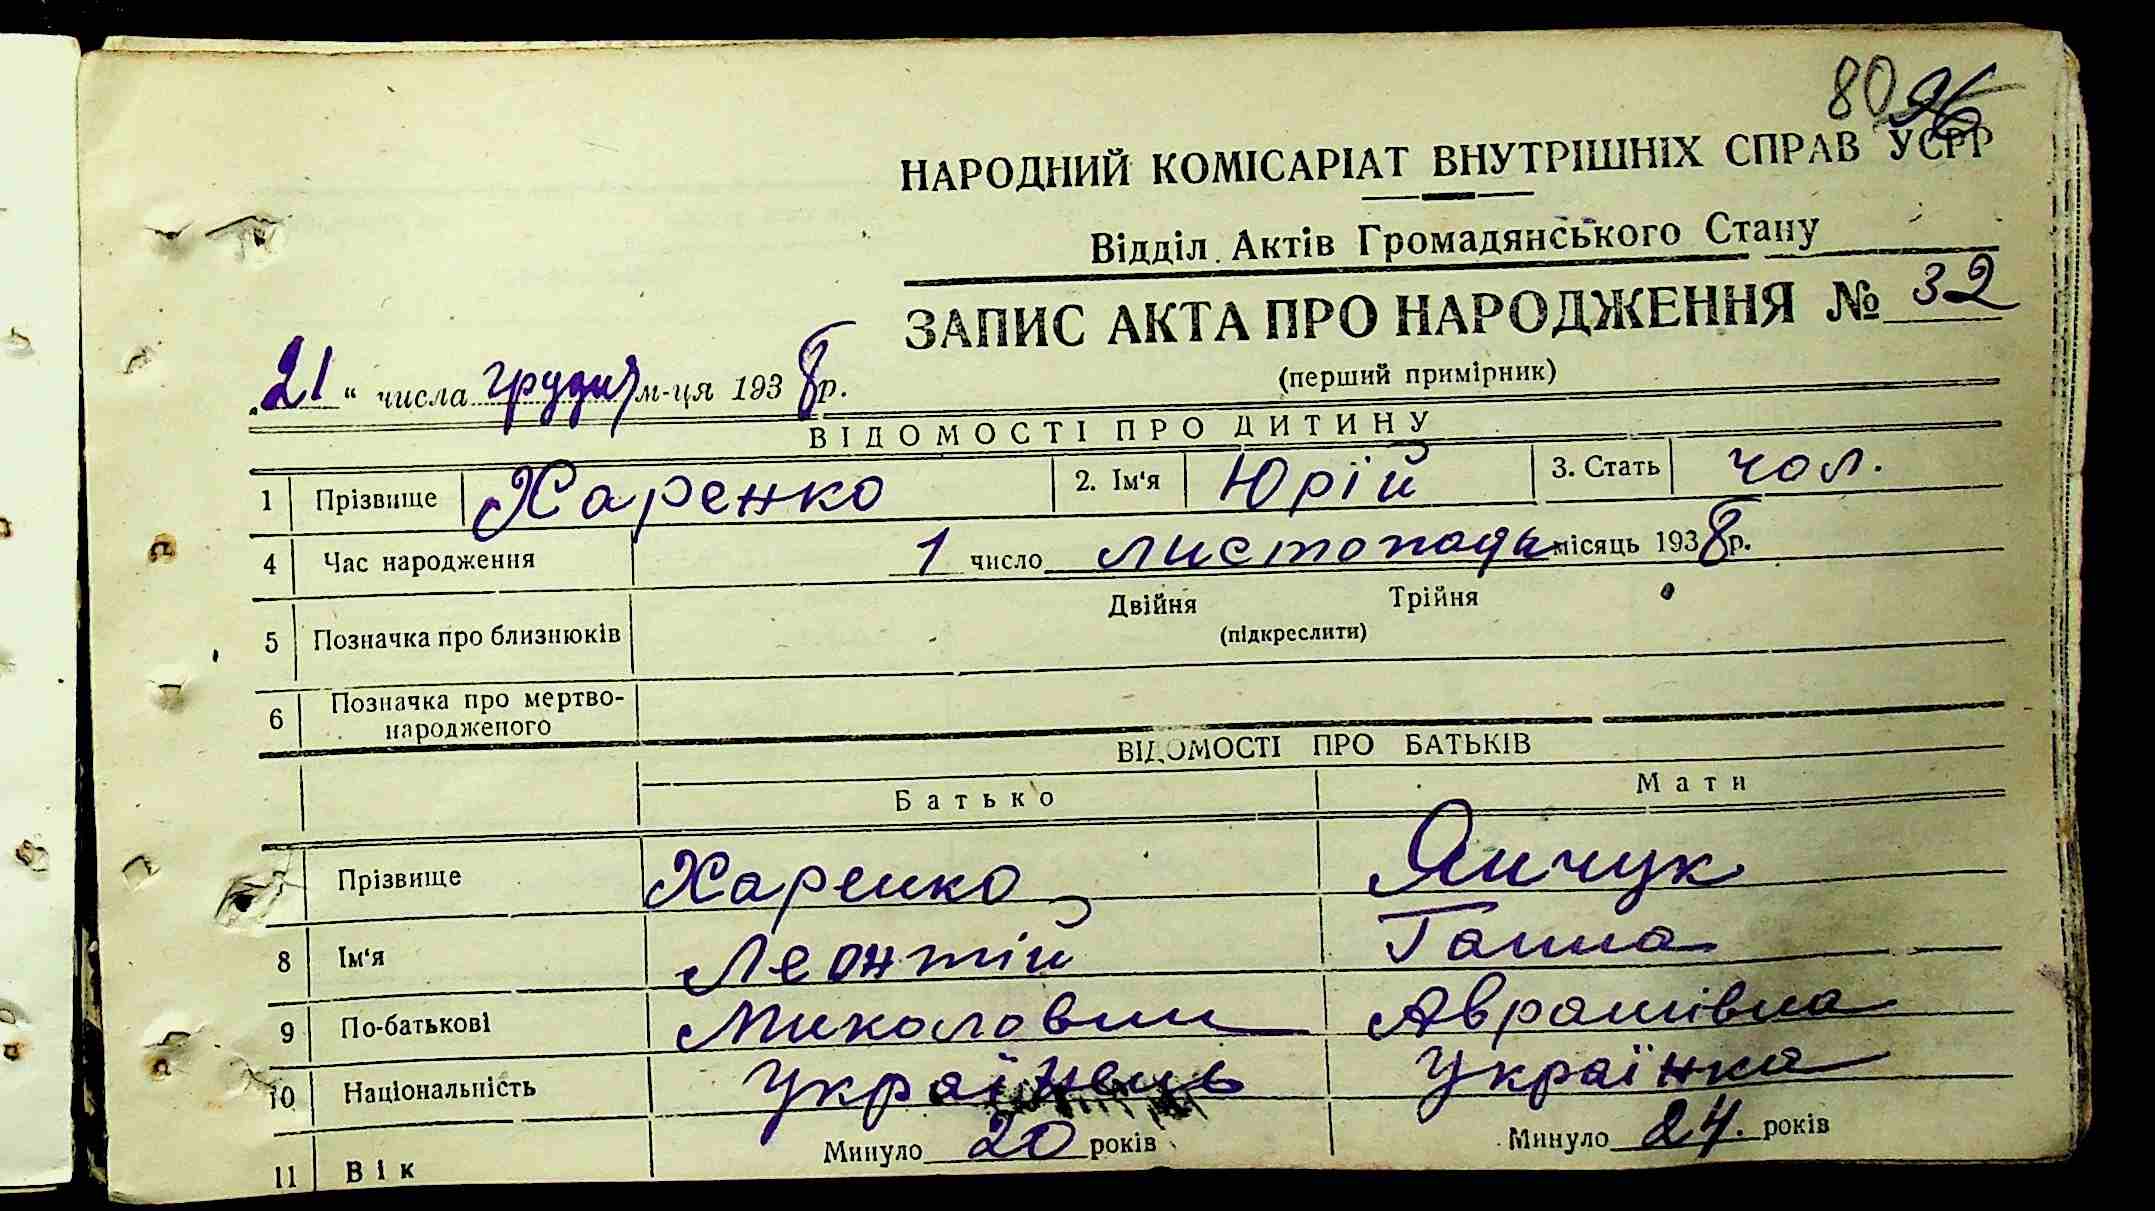 80 96
НАРОДНИЙ КОМІСАРІАТ ВНУТРІШНІХ СПРАВ УСРР
Відділ Актів Громадянського Стану
ЗАПИС АКТА ПРО НАРОДЖЕННЯ № 32
(перший примірник)
„21“ числа грудня м-ця 1938 р.
ВІДОМОСТІ ПРО ДИТИНУ
1 Прізвище Харенко 2. Ім'я Юрій 3. Стать чол.
4 Час народження 1 число листопада місяць 1938 р.
Двійня Трійня
5 Позначка про близнюків (підкреслити)
6 Позначка про мертво-
народженого
ВІДОМОСТІ ПРО БАТЬКІВ
Батько Мати
Прізвище Харенко Янчук
8 Ім'я Леонтій Ганна
9 По-батькові Миколович Аврамівна
10 Національність Українець Українка
11 Вік Минуло 20 років Минуло 24. років